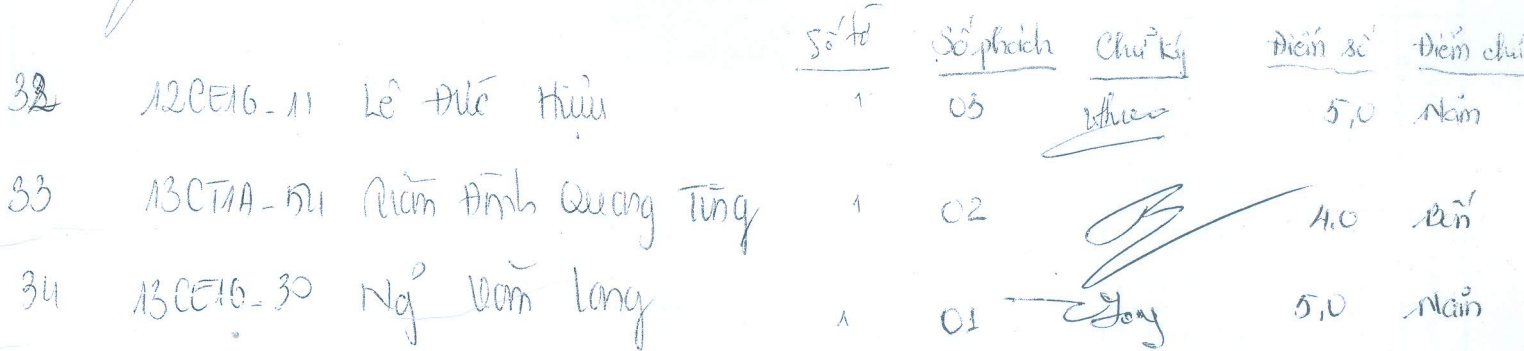 Số tờ Số phách Chữ ký Điểm số Điểm chữ
32 12CE1G-11 Lê Đức Hữu 1 03 5,0 Năm
33 13CT1A-54 Đình Quang Tùng 1 02 4.0 Bốn
34 13CE1G-30 Ngô Văn Long 1 01 5,0 Năm